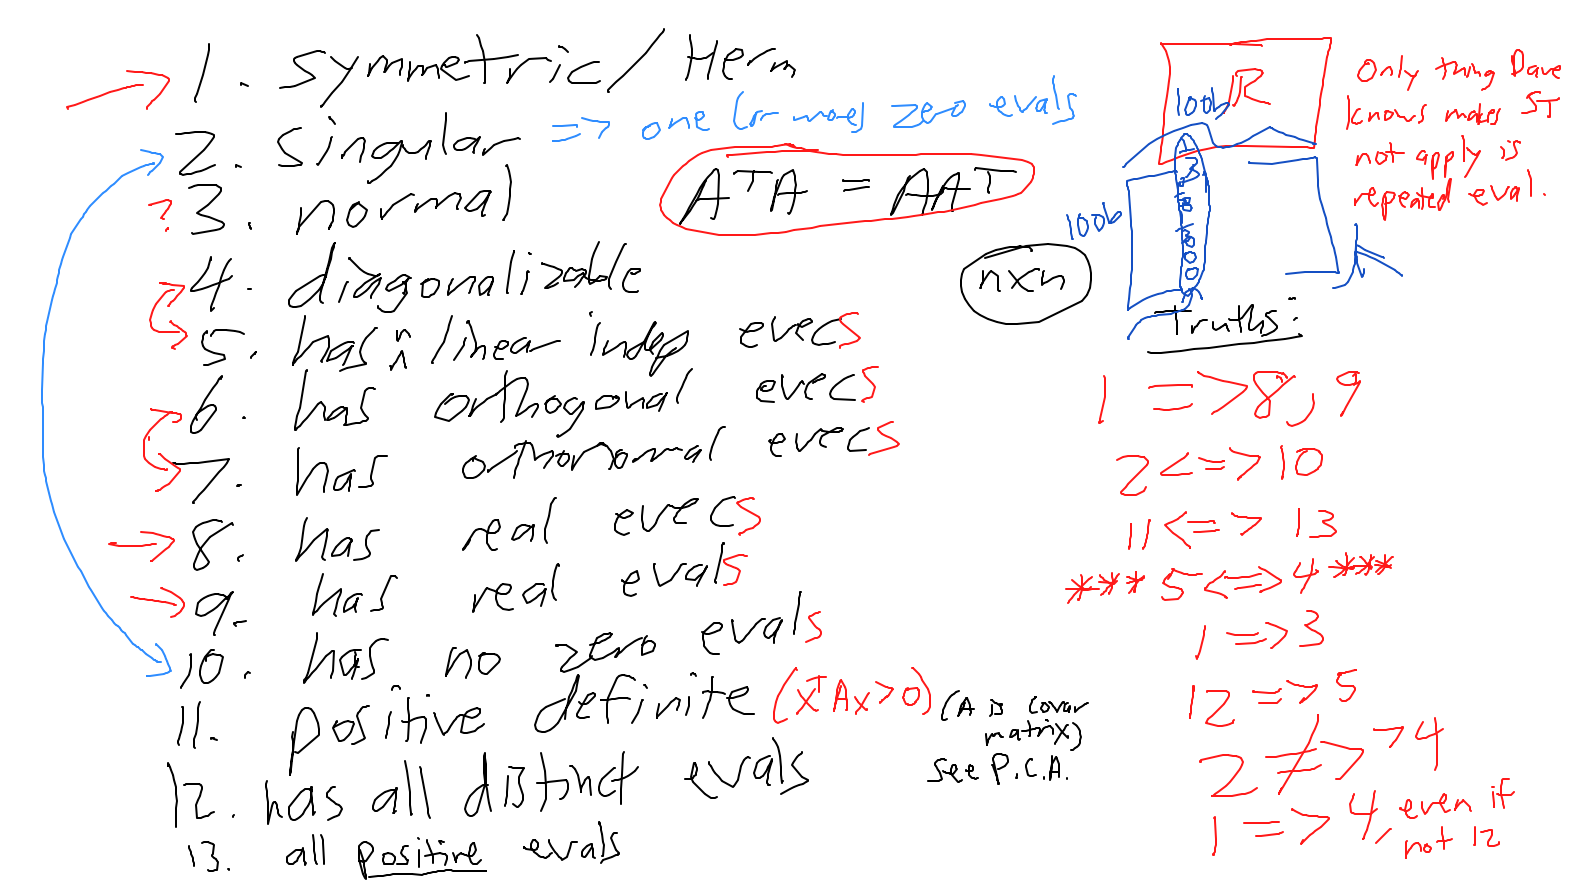 1. symmetric / Herm
2. singular => one (or more) zero evals
? 3. normal
AᵀA = AAᵀ
4. diagonalizable
5. has n linear indep evecs
6. has orthogonal evecs
7. has orthonormal evecs
8. has real evecs
9. has real evals
10. has no zero evals
11. positive definite (xᵀAx > 0) (A is covar
matrix)
see P.C.A.
12. has all distinct evals
13. all positive evals
nxn
R
100b
100b
Only thing Dave
knows makes ST
not apply is
repeated eval.
Truths:
1 => 8, 9
2 <=> 10
11 <=> 13
*** 5 <=> 4 ***
1 => 3
12 => 5
2 ≠> ¬4
1 => 4, even if
not 12